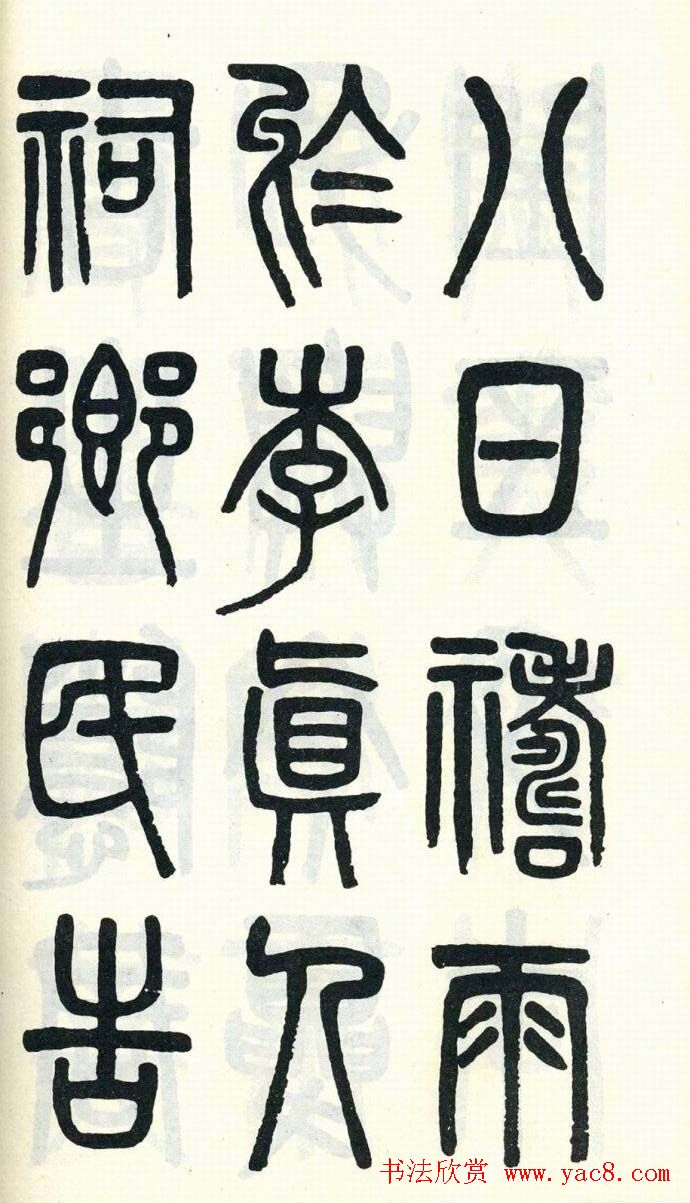 八日禱雨
於李真人
祠鄉民告
书法欣赏 www.yac8.com